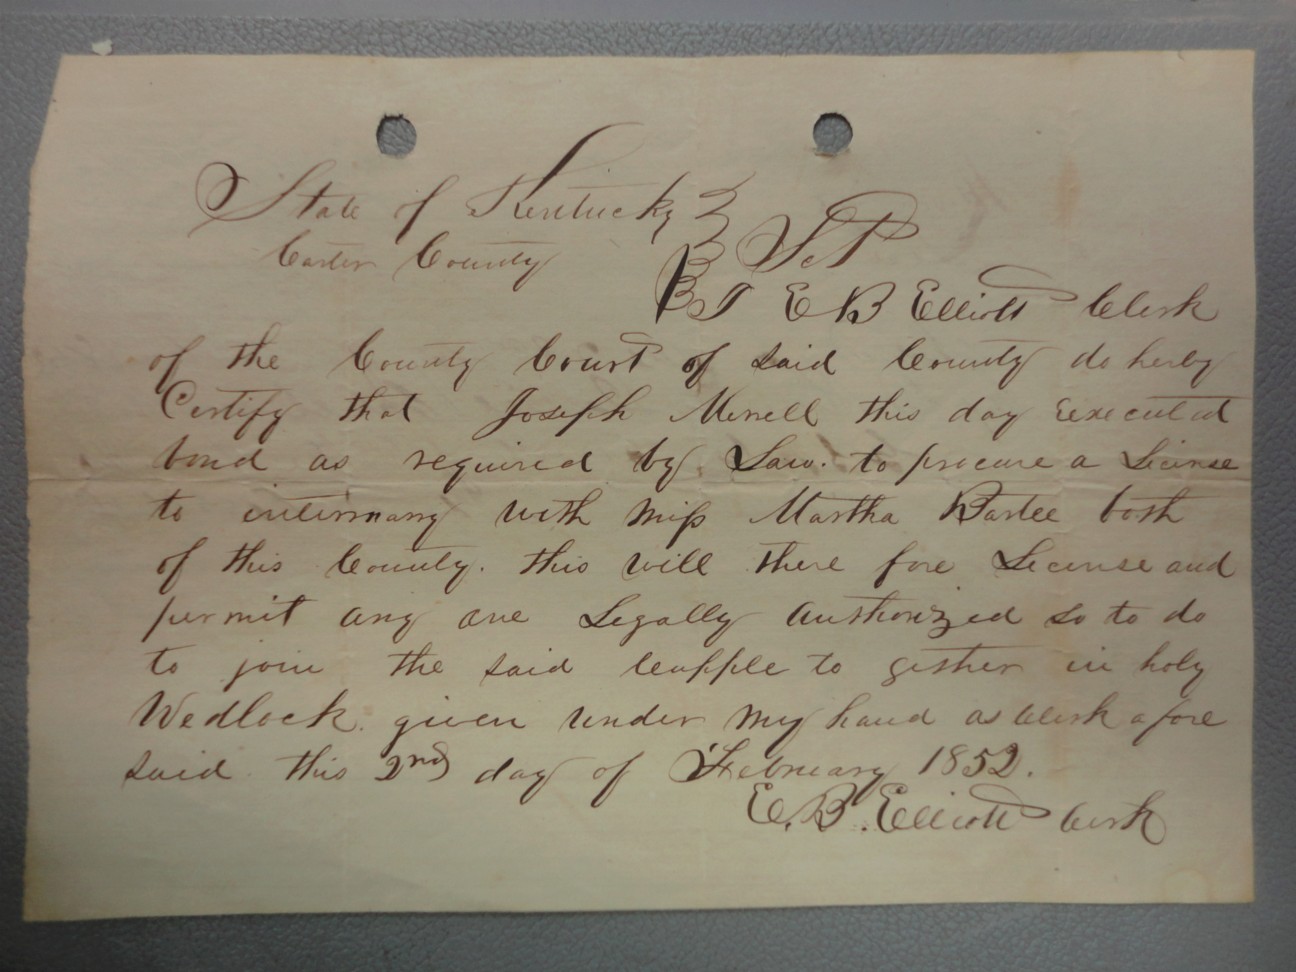 State of Kentucky
Carter County } Sct
I E B Elliott Clerk
of the County Court of said County do herby
Certify that Joseph Merrell this day executed
bond as required by Law. to procure a License
to intermarry with Miss Martha Bartee both
of this County. this will there fore License and
permit any one Legally Authorized so to do
to join the said cupple to gether in holy
Wedlock. given under my hand as Clerk afore
said this 2nd day of February 1852.
E. B. Elliott Clerk